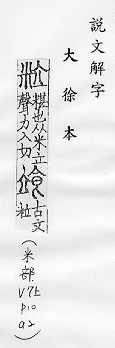 說文解字
大徐本
糂也从米立
聲力入切
古文
粒
(米部
V7上
p10
a2)